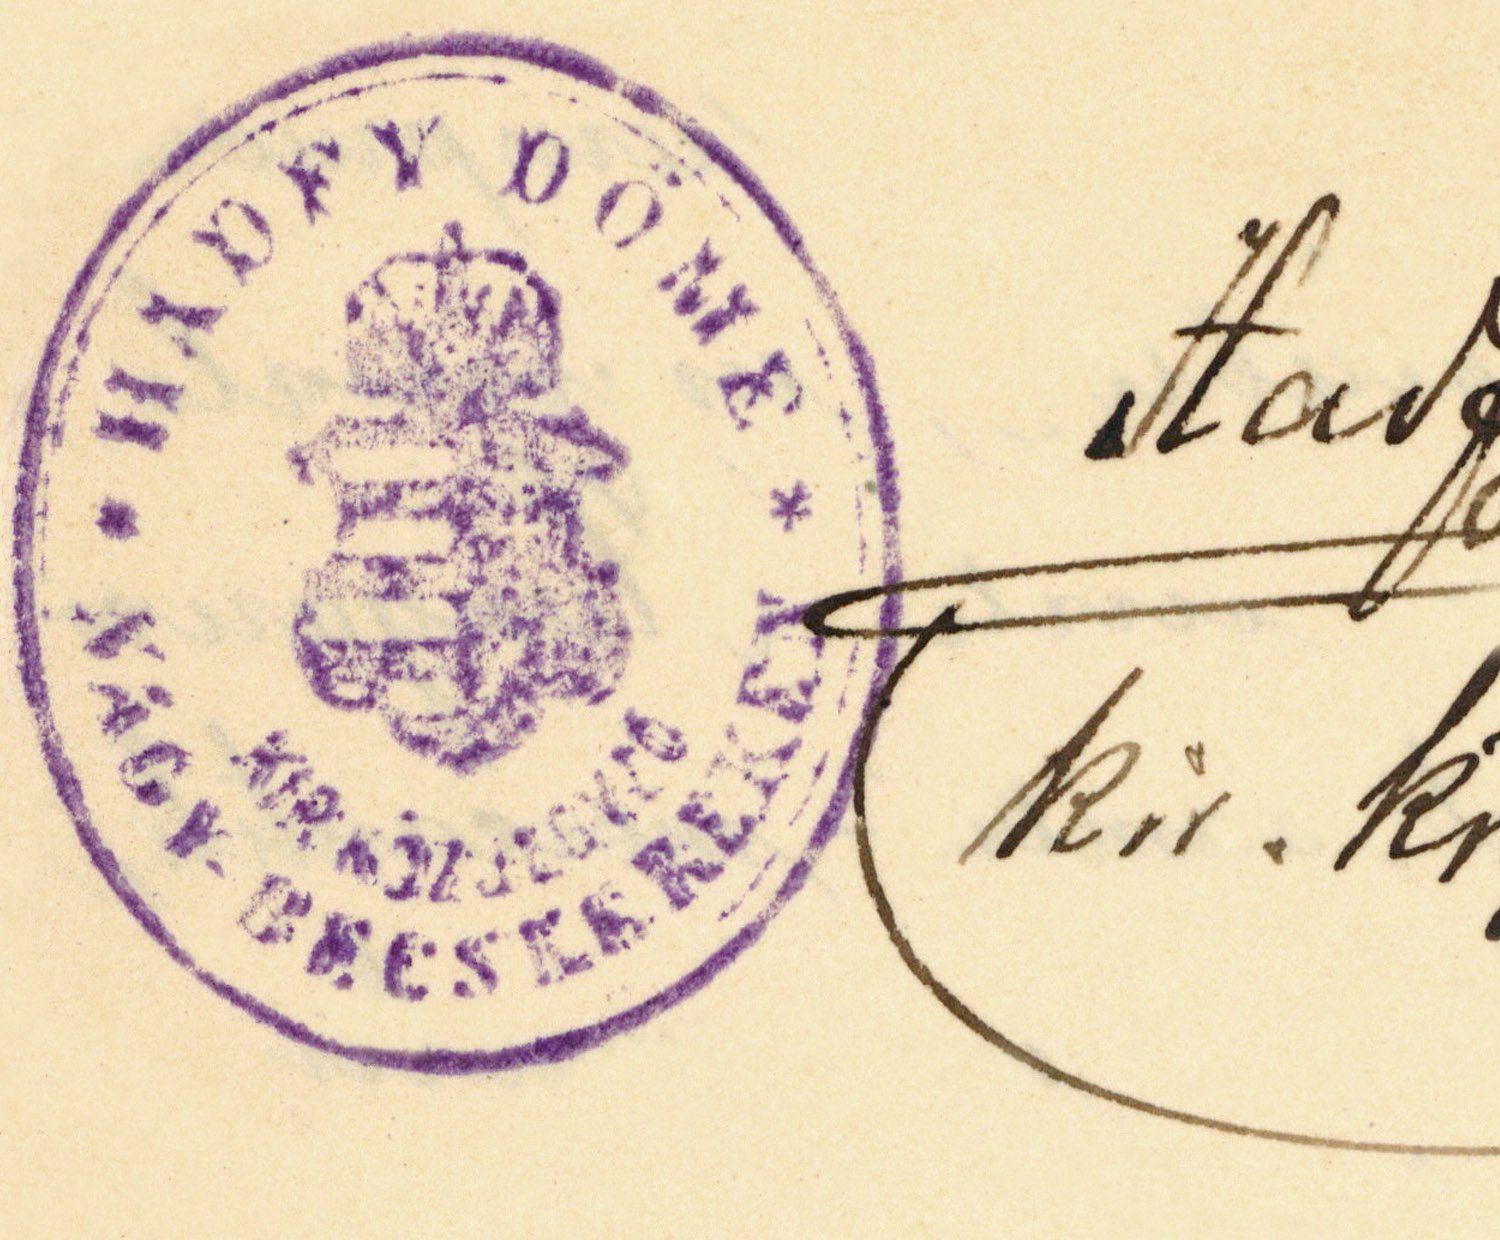 * HADFY DÖME *
NAGY-BECSKEREKEN
KIR. KÖZJEGYZŐ
Hadf
kir. kö